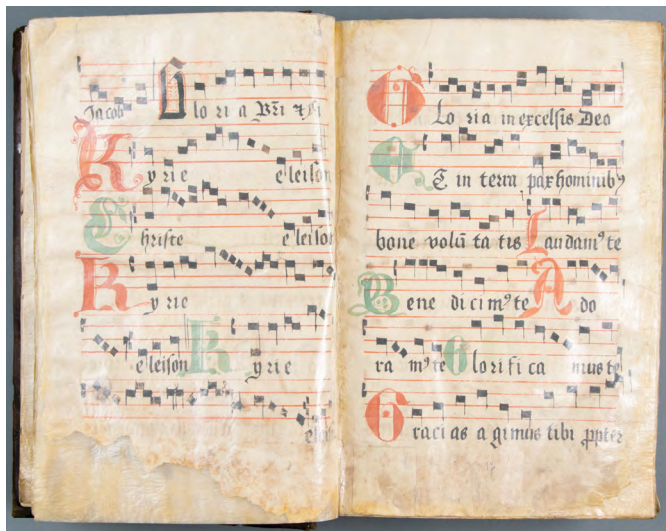 Jacob Glo ri a Pr̄i ⁊ fi
Kyrie eleison
Christe eleison
Kyrie
eleison Kyrie
elei
Glo ria in excelsis Deo
Et in terra pax hominibꝰ
bone volū ta tis Laudamꝰ te
Bene di cimꝰ te Ado
ra mꝰ te Glo ri fi ca mus te
Graci as a gimus tibi ꝓpter